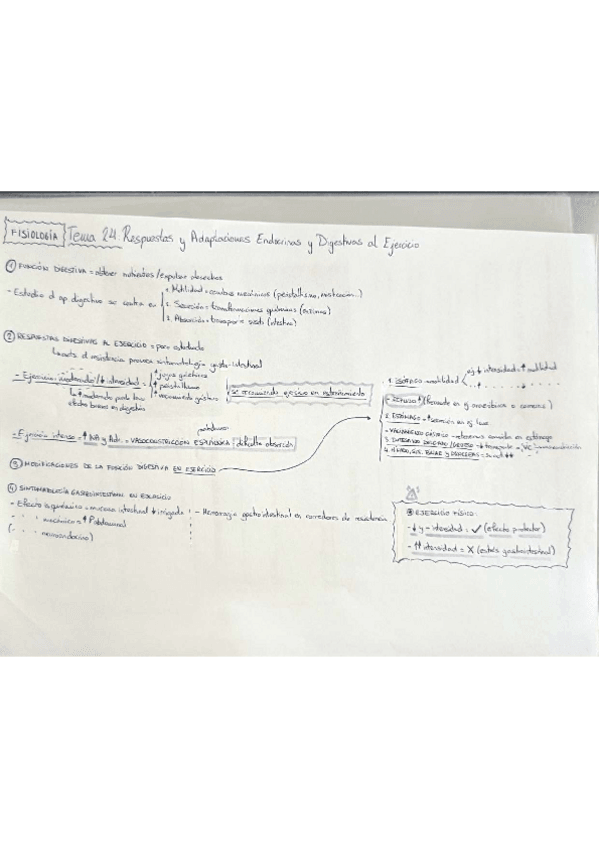 FISIOLOGÍA Tema 24. Respuestas y Adaptaciones Endocrinas y Digestivas al Ejercicio
① FUNCIÓN DIGESTIVA = obtener nutrientes/expulsar desechos
- Estudio d ap digestivo se centra en
1. Motilidad = cambios mecánicos (peristaltismo, masticación...)
2. Secreción = transformaciones químicas (enzimas)
3. Absorción = transporte (intestino)
② RESPUESTAS DIGESTIVAS AL EJERCICIO = poco estudiado
d resistencia provoca sintomatología gastro-intestinal
- Ejercicio moderado/↓ intensidad =
↑ jugos gástricos
↑ peristaltismo
↑ vaciamiento gástrico
moderado puede tener
efectos buenos en digestión
Se recomienda ejercicio en estreñimiento
- Ejercicio intenso = ↑ NA y Adr. = VASOCONSTRICCIÓN ESPLÁCNICA: dificulta absorción
③ MODIFICACIONES DE LA FUNCIÓN DIGESTIVA EN EJERCICIO
1. ESÓFAGO = motilidad
ej ↓ intensidad = ↑ motilidad
- REFLUJO ↑ (frecuente en ej anaeróbico o comidas)
2. ESTÓMAGO = ↑ secreción en ej leve
- VACIAMIENTO GÁSTRICO =
3. INTESTINO DELGADO/GRUESO =
④ SINTOMATOLOGÍA GASTROINTESTINAL EN EJERCICIO
- Efecto isquémico = mucosa intestinal ↓ irrigada
- " mecánico = ↑ P abdominal
(- " neuroendocrino)
- Hemorragia gastrointestinal en corredores de resistencia
EJERCICIO FÍSICO:
- ↓ y ~ intensidad: ✓ (efecto protector)
- ↑↑ intensidad = X (estrés gastrointestinal)